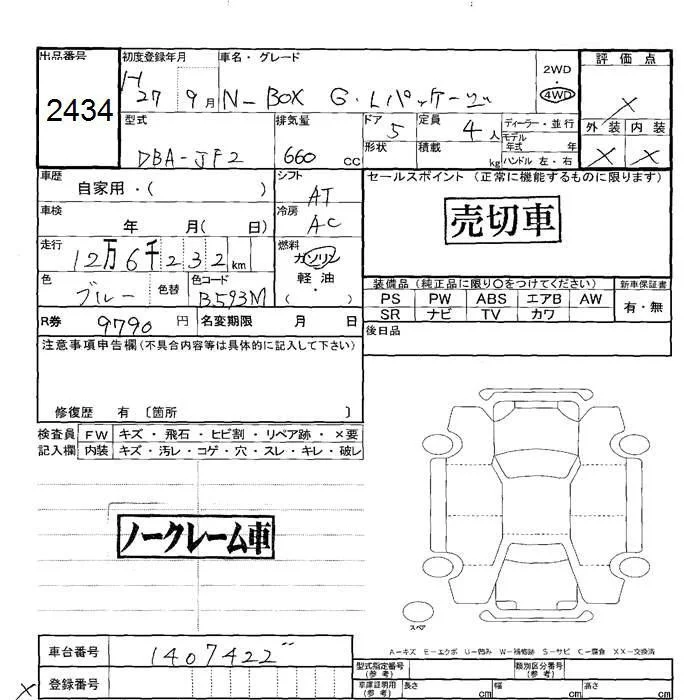 出品番号 初度登録年月 車名・グレード 評価点
2434 H 27 9月 N-BOX G・Lパッケージ 2WD 4WD ×
型式 排気量 ドア 定員 ディーラー・並行 外装 内装
DBA-JF2 660 cc 5 4人 モデル年式 年
形状 積載 kg ハンドル 左・右 × ×
車歴 自家用・( ) シフト AT セールスポイント(正常に機能するものに限ります)
車検 年 月( 日) 冷房 AC 売切車
走行 12万6千232km 燃料 ガソリン
軽油
( )
色 ブルー 色替 色コード B593M 装備品(純正品に限り○をつけてください) 新車保証書
PS PW ABS エアB AW 有・無
R券 9790円 名変期限 月 日 SR ナビ TV カワ
後日品
注意事項申告欄(不具合内容等は具体的に記入して下さい)
修復歴 有 〔箇所 〕
検査員 FW キズ・飛石・ヒビ割・リペア跡・×要
記入欄 内装 キズ・汚レ・コゲ・穴・スレ・キレ・破レ
ノークレーム車
スペア
A-キズ E-エクボ U-凹み W-補修跡 S-サビ C-腐食 XX-交換済
車台番号 1407422 型式指定番号(参考) 類別区分番号(参考)
× 登録番号 車庫証明用(参考) 長さ cm 幅 cm 高さ cm